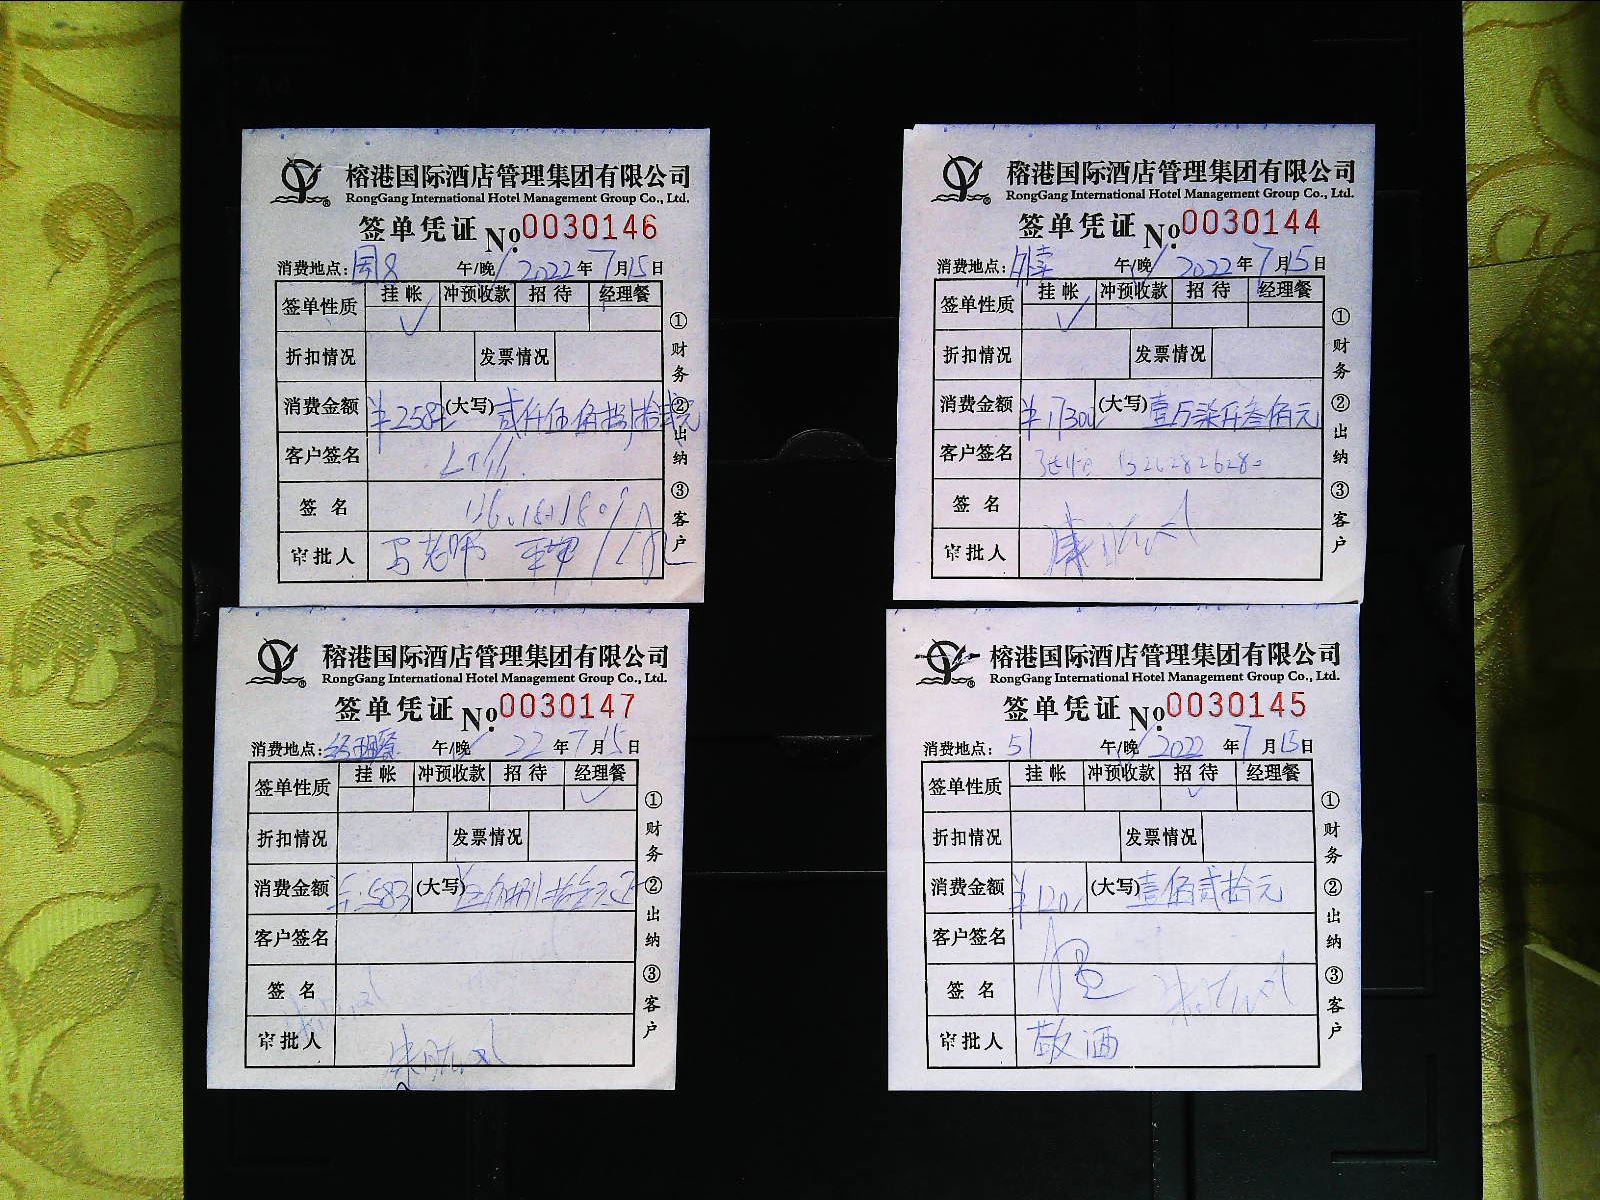 榕港国际酒店管理集团有限公司
RongGang International Hotel Management Group Co., Ltd.
签单凭证 No. 0030146
消费地点: 周8 午/晚 2022年7月15日
签单性质 挂帐 冲预收款 招待 经理餐
✓
折扣情况 发票情况
消费金额 ¥2582 (大写) 贰仟伍佰捌拾贰元
客户签名
签名
审批人
①财务 ②出纳 ③客户
榕港国际酒店管理集团有限公司
RongGang International Hotel Management Group Co., Ltd.
签单凭证 No. 0030144
消费地点: 外卖 午/晚 2022年7月15日
签单性质 挂帐 冲预收款 招待 经理餐
✓
折扣情况 发票情况
消费金额 ¥17300 (大写) 壹万柒仟叁佰元
客户签名
签名
审批人
①财务 ②出纳 ③客户
榕港国际酒店管理集团有限公司
RongGang International Hotel Management Group Co., Ltd.
签单凭证 No. 0030147
消费地点: 经理餐 午/晚 22年7月15日
签单性质 挂帐 冲预收款 招待 经理餐
✓
折扣情况 发票情况
消费金额 ¥583 (大写)
客户签名
签名
审批人
①财务 ②出纳 ③客户
榕港国际酒店管理集团有限公司
RongGang International Hotel Management Group Co., Ltd.
签单凭证 No. 0030145
消费地点: 51 午/晚 2022年7月15日
签单性质 挂帐 冲预收款 招待 经理餐
✓
折扣情况 发票情况
消费金额 ¥120 (大写) 壹佰贰拾元
客户签名
签名
审批人 敬酒
①财务 ②出纳 ③客户